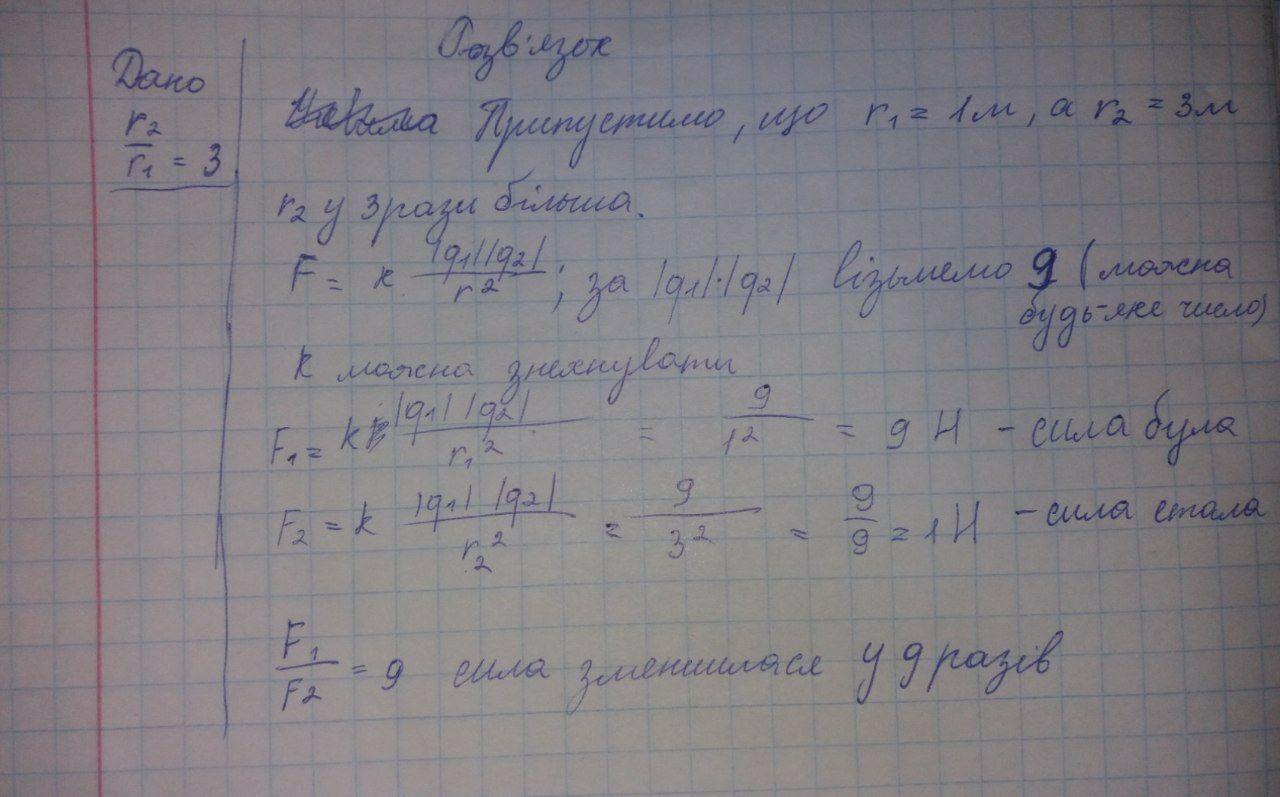 Розв'язок
Дано
r₂/r₁ = 3
Припустимо, що r₁ = 1м, а r₂ = 3м
r₂ у 3 рази більша.
F = k |q₁||q₂|/r² ; за |q₁|·|q₂| візьмемо 9 (можна
будь-яке число)
k можна знехнувати
F₁ = k |q₁| |q₂|/r₁² = 9/1² = 9 Н - сила була
F₂ = k |q₁| |q₂|/r₂² = 9/3² = 9/9 = 1 Н - сила стала
F₁/F₂ = 9 сила зменшилася у 9 разів